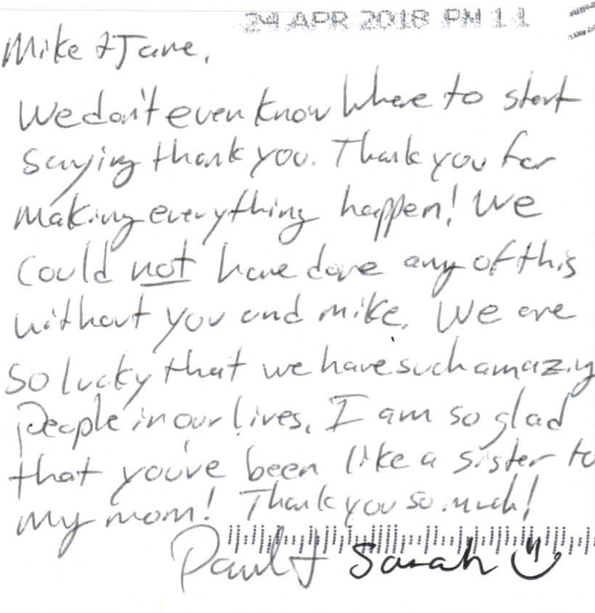 24 APR 2018 PM 11
Mike & Jane,
We don't even know where to start
saying thank you. Thank you for
making everything happen! We
could not have done any of this
without you and mike. We are
so lucky that we have such amazing
people in our lives. I am so glad
that you've been like a sister to
my mom! Thank you so much!
Paul & Sarah